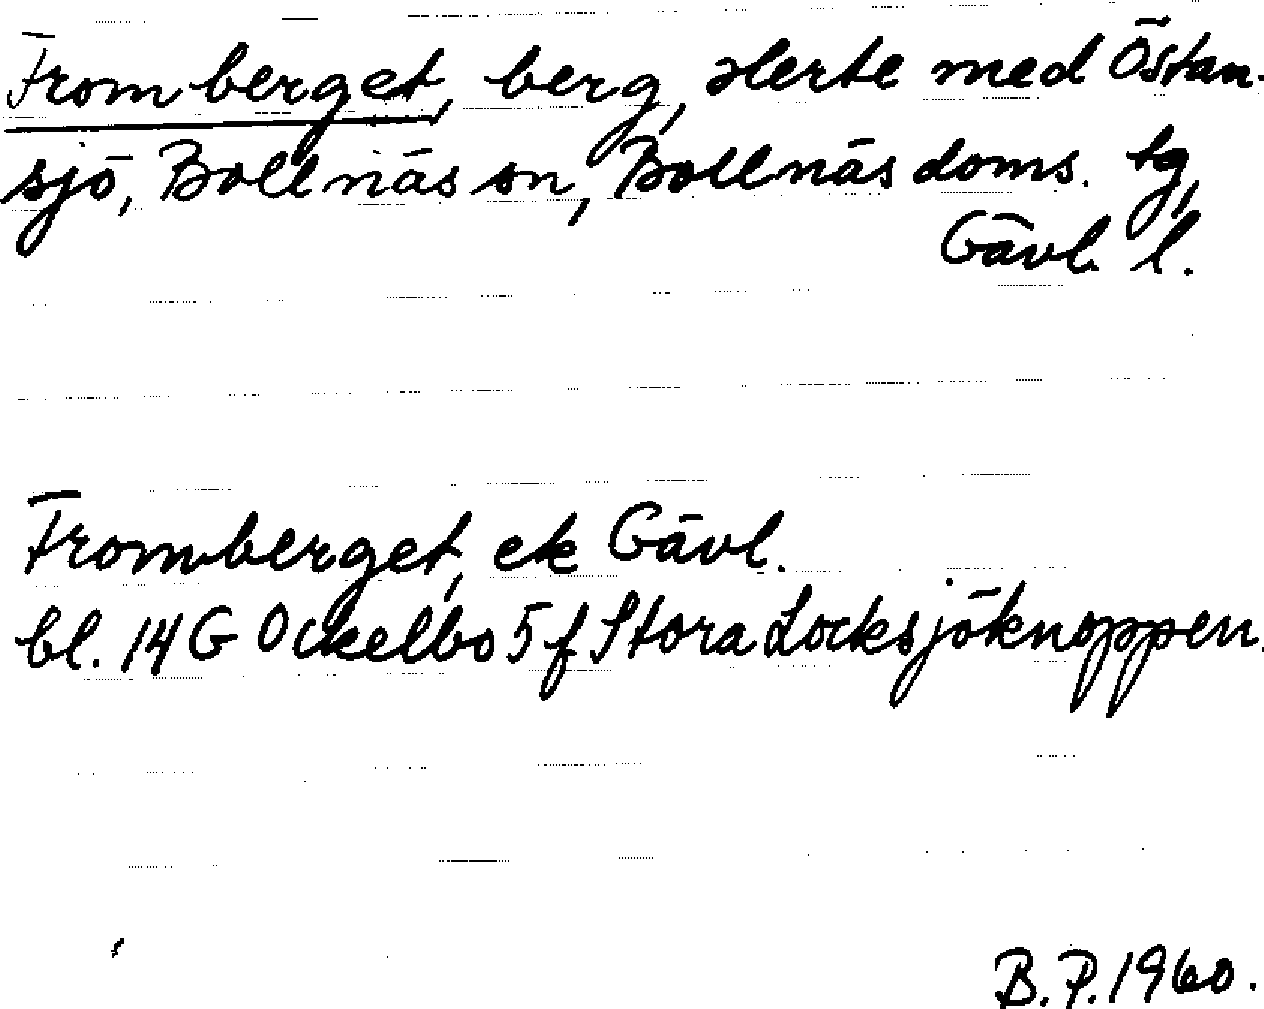 Fromberget, berg, Herte med Östan-
sjö, Bollnäs sn, Bollnäs doms. tg,
Gävl. l.
Fromberget, ek Gävl.
bl. 14 G Ockelbo 5 f Stora Locksjöknoppen.
B.P. 1960.